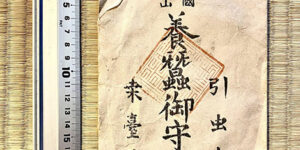 引虫
山
養蠶御守
桒臺
5 6 7 8 9 10 11 12 13 14 15